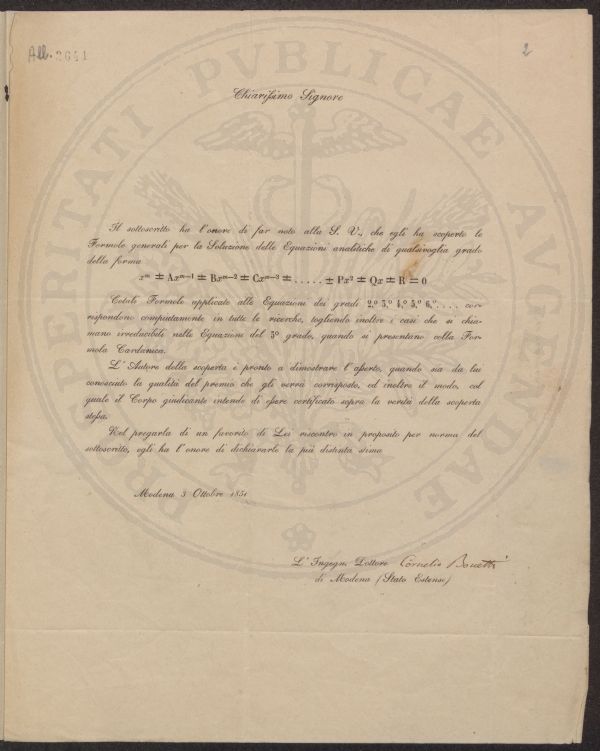 Alb. 2641
2
PROSPERITATI PVBLICAE AVGENDAE
Chiarissimo Signore
Il sottoscritto ha l'onore di far noto alla S. V., che egli ha scoperto le
Formole generali per la Soluzione delle Equazioni analitiche di qualsivoglia grado
della forma
xᵐ ± Axᵐ⁻¹ ± Bxᵐ⁻² ± Cxᵐ⁻³ ± ..... ± Px² ± Qx ± R = 0
Cotali Formole applicate alle Equazioni dei gradi 2.º 3.º 4.º 5.º 6.º .... cor-
rispondono compiutamente in tutte le ricerche, togliendo inoltre i casi che si chia-
mano irreducibili nelle Equazioni del 3º grado, quando si presentano colla For-
mola Cardanica.
L'Autore della scoperta è pronto a dimostrare l'asserto, quando sia da lui
conosciuto la qualità del premio che gli verrà corrisposto, ed inoltre il modo, col
quale il Corpo giudicante intende di essere certificato sopra la verità della scoperta
stessa.
Nel pregarla di un favorito di Lei riscontro in proposito per norma del
sottoscritto, egli ha l'onore di dichiararle la più distinta stima
Modena 3 Ottobre 1851
L'Ingegn. Dottore Cornelio
di Modena (Stato Estense)